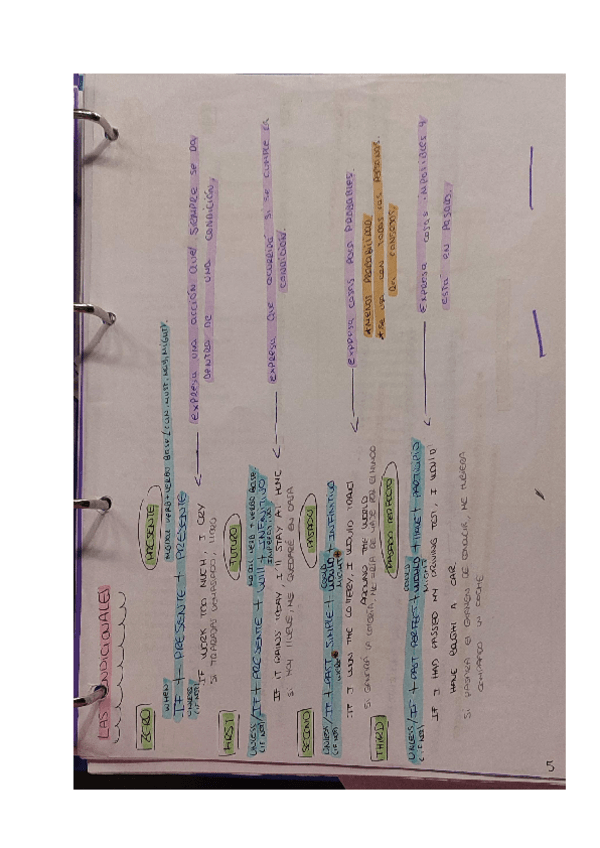 LAS CONDICIONALES
ZERO
PRESENTE
WHEN
MODAL VERB + VERBO BASE (CAN, MUST, MAY, MIGHT).
IF + PRESENTE + PRESENTE
UNLESS
(IF NOT)
EXPRESA UNA ACCIÓN QUE SIEMPRE SE DA
DENTRO DE UNA CONDICIÓN.
IF WORK TOO MUCH, I CRY
SI TRABAJAS DEMASIADO, LLORO
FIRST
FUTURO
MODAL VERB + VERBO BASE
UNLESS / IF + PRESENTE + WILL + INFINITIVO
(IF NOT)
IMPERATIVO
EXPRESA QUE OCURRIRÁ SI SE CUMPLE LA
CONDICIÓN.
IF IT RAINS TODAY, I'LL STAY AT HOME
SI HOY LLUEVE, ME QUEDARÉ EN CASA
SECOND
PASADO
COULD
UNLESS / IF + PAST SIMPLE + WOULD + INFINITIVO
(IF NOT)
WERE
MIGHT
EXPRESA COSAS POCO PROBABLES.
*MENOS PROBABILIDAD
*SE USA CON TODAS LAS PERSONAS.
IF I WON THE LOTTERY, I WOULD TRAVEL
AROUND THE WORLD
SI GANARA LA LOTERÍA, ME IRÍA DE VIAJE POR EL MUNDO
THIRD
PASADO PERFECTO
COULD
UNLESS / IF + PAST PERFECT + WOULD + HAVE + PARTICIPIO
(IF NOT)
MIGHT
EXPRESA COSAS IMPOSIBLES Y
ESTÁ EN PASADO.
IF I HAD PASSED MY DRIVING TEST, I WOULD
HAVE BOUGHT A CAR.
SI PASARA EL EXAMEN DE CONDUCIR, ME HUBIERA
COMPRADO UN COCHE
5